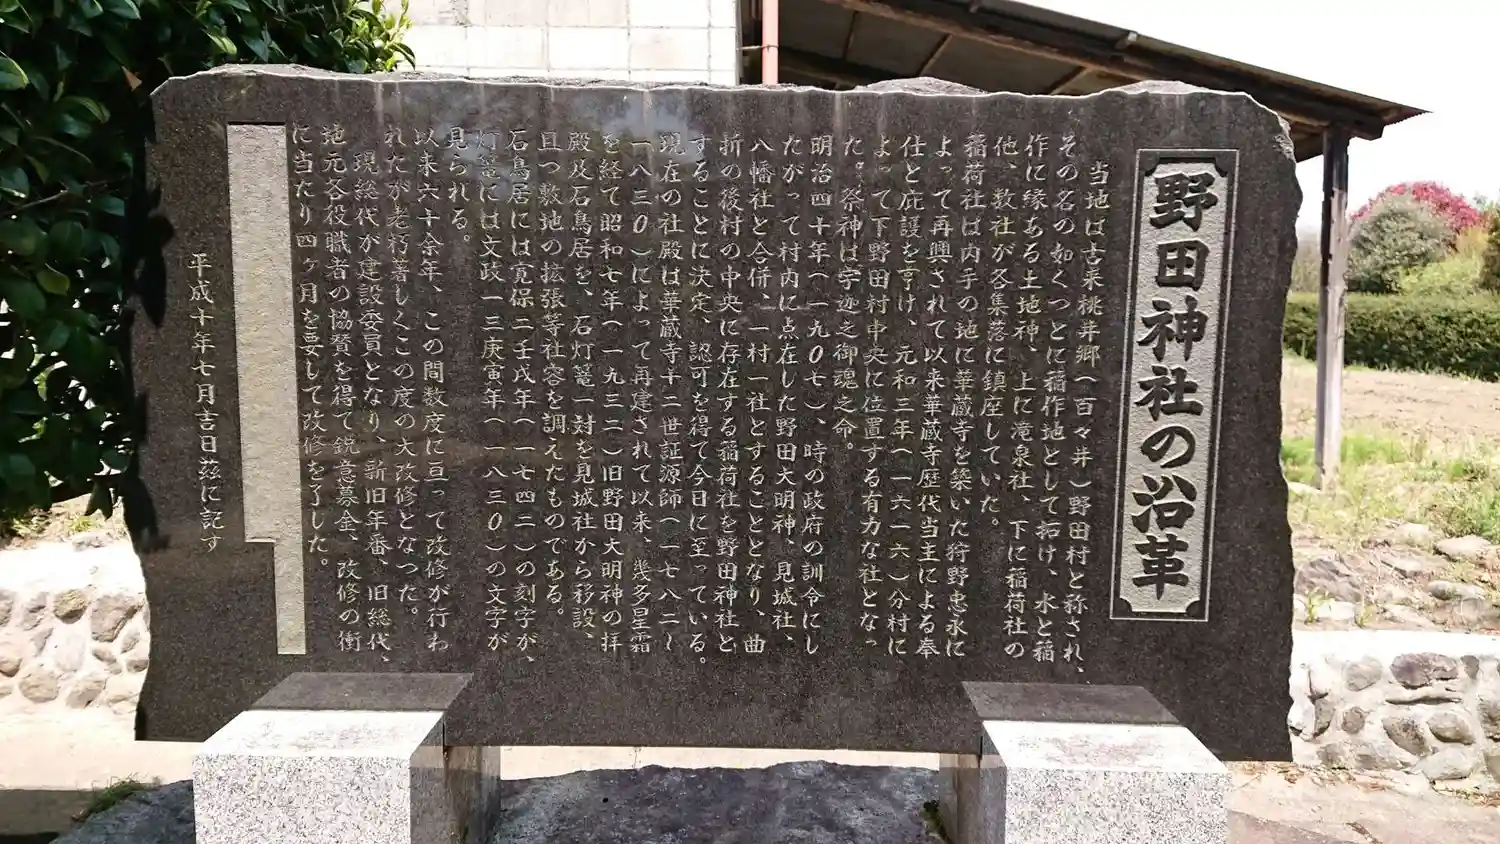 野田神社の沿革
当地は古来桃井郷(百々井)野田村と称され、
その名の如くつとに稲作地として拓け、水と稲
作に縁ある土地神、上に滝泉社、下に稲荷社の
他、数社が各集落に鎮座していた。
稲荷社は内手の地に華蔵寺を築いた狩野忠永に
よって再興されて以来華蔵寺歴代当主による奉
仕と庇護を享け、元和三年(一六一六)分村に
よって下野田村中央に位置する有力な社となっ
た。祭神は宇迦之御魂之命。
明治四十年(一九〇七)、時の政府の訓令にし
たがって村内に点在した野田大明神、見城社、
八幡社と合併、一村一社とすることとなり、曲
折の後村の中央に存在する稲荷社を野田神社と
することに決定、認可を得て今日に至っている。
現在の社殿は華蔵寺十二世証源師(一七八二~
一八三〇)によって再建されて以来、幾多星霜
を経て昭和七年(一九三二)旧野田大明神の拝
殿及石鳥居を、石灯篭一対を見城社から移設、
且つ敷地の拡張等社容を調えたものである。
石鳥居には寛保二壬戌年(一七四二)の刻字が、
灯篭には文政一三庚寅年(一八三〇)の文字が
見られる。
以来六十余年、この間数度に亘って改修が行わ
れたが老朽著しくこの度の大改修となった。
現総代が建設委員となり、新旧年番、旧総代、
地元各役職者の協賛を得て鋭意募金、改修の衝
に当たり四ヶ月を要して改修を了した。
平成十年七月吉日茲に記す